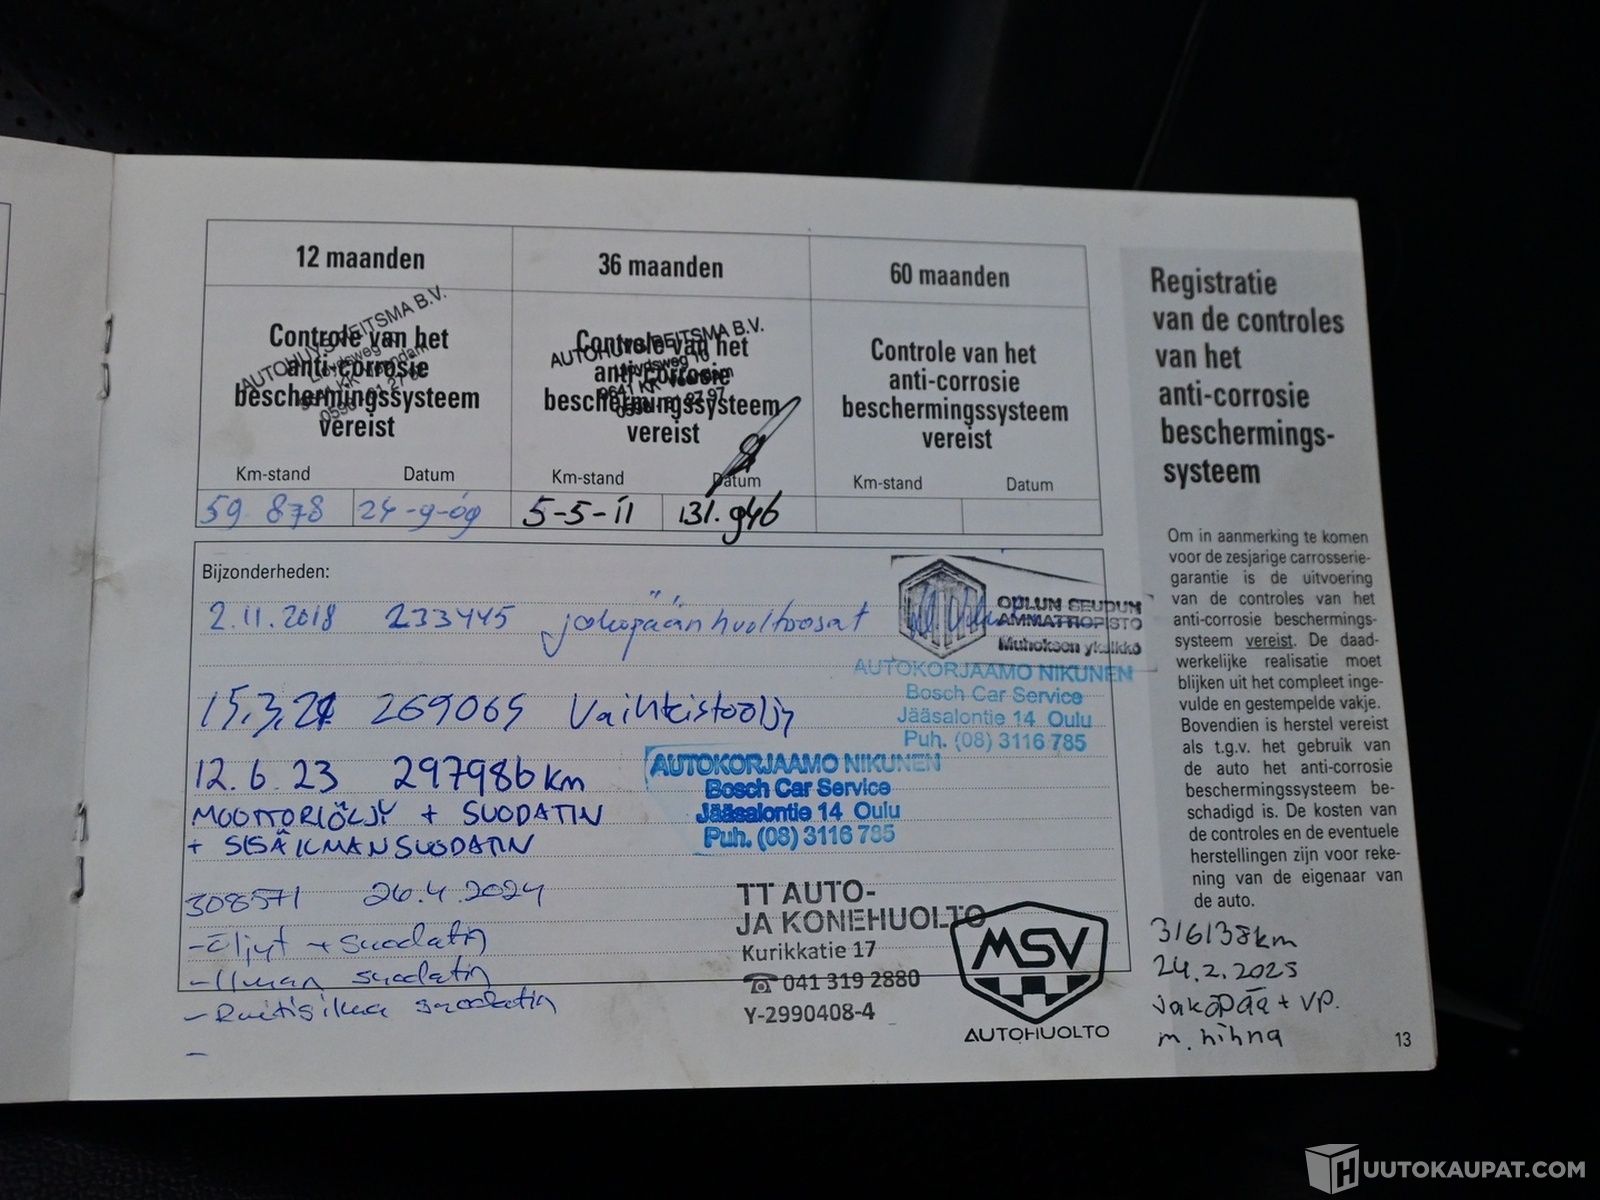 12 maanden
Controle van het
anti-corrosie
beschermingssysteem
vereist
Km-stand Datum
59.878 24-9-09
36 maanden
AUTOHUYS REITSMA B.V.
Controle van het
anti-corrosie
beschermingssysteem
vereist
Km-stand Datum
5-5-11 131.946
60 maanden
Controle van het
anti-corrosie
beschermingssysteem
vereist
Km-stand Datum
Bijzonderheden:
2.11.2018 233445 jakopään huoltoosat
OULUN SEUDUN
AMMATTIOPISTO
Muhoksen yksikkö
15.3.21 269065 Vaihteistoöljy
AUTOKORJAAMO NIKUNEN
Bosch Car Service
Jääsalontie 14 Oulu
Puh. (08) 3116 785
12.6.23 297986 km
MOOTTORIÖLJY + SUODATIN
+ SISÄILMANSUODATIN
AUTOKORJAAMO NIKUNEN
Bosch Car Service
Jääsalontie 14 Oulu
Puh. (08) 3116 785
308571 26.4.2024
-Öljyt + suodatin
-Ilman suodatin
-Raitisilma suodatin
-
TT AUTO-
JA KONEHUOLTO
Kurikkatie 17
☎ 041 319 2880
Y-2990408-4
MSV
AUTOHUOLTO
Registratie
van de controles
van het
anti-corrosie
beschermings-
systeem
Om in aanmerking te komen
voor de zesjarige carrosserie-
garantie is de uitvoering
van de controles van het
anti-corrosie beschermings-
systeem vereist. De daad-
werkelijke realisatie moet
blijken uit het compleet inge-
vulde en gestempelde vakje.
Bovendien is herstel vereist
als t.g.v. het gebruik van
de auto het anti-corrosie
beschermingssysteem be-
schadigd is. De kosten van
de controles en de eventuele
herstellingen zijn voor reke-
ning van de eigenaar van
de auto.
316138km
24.2.2025
Jakopää + VP.
m. hihna
13
HUUTOKAUPAT.COM